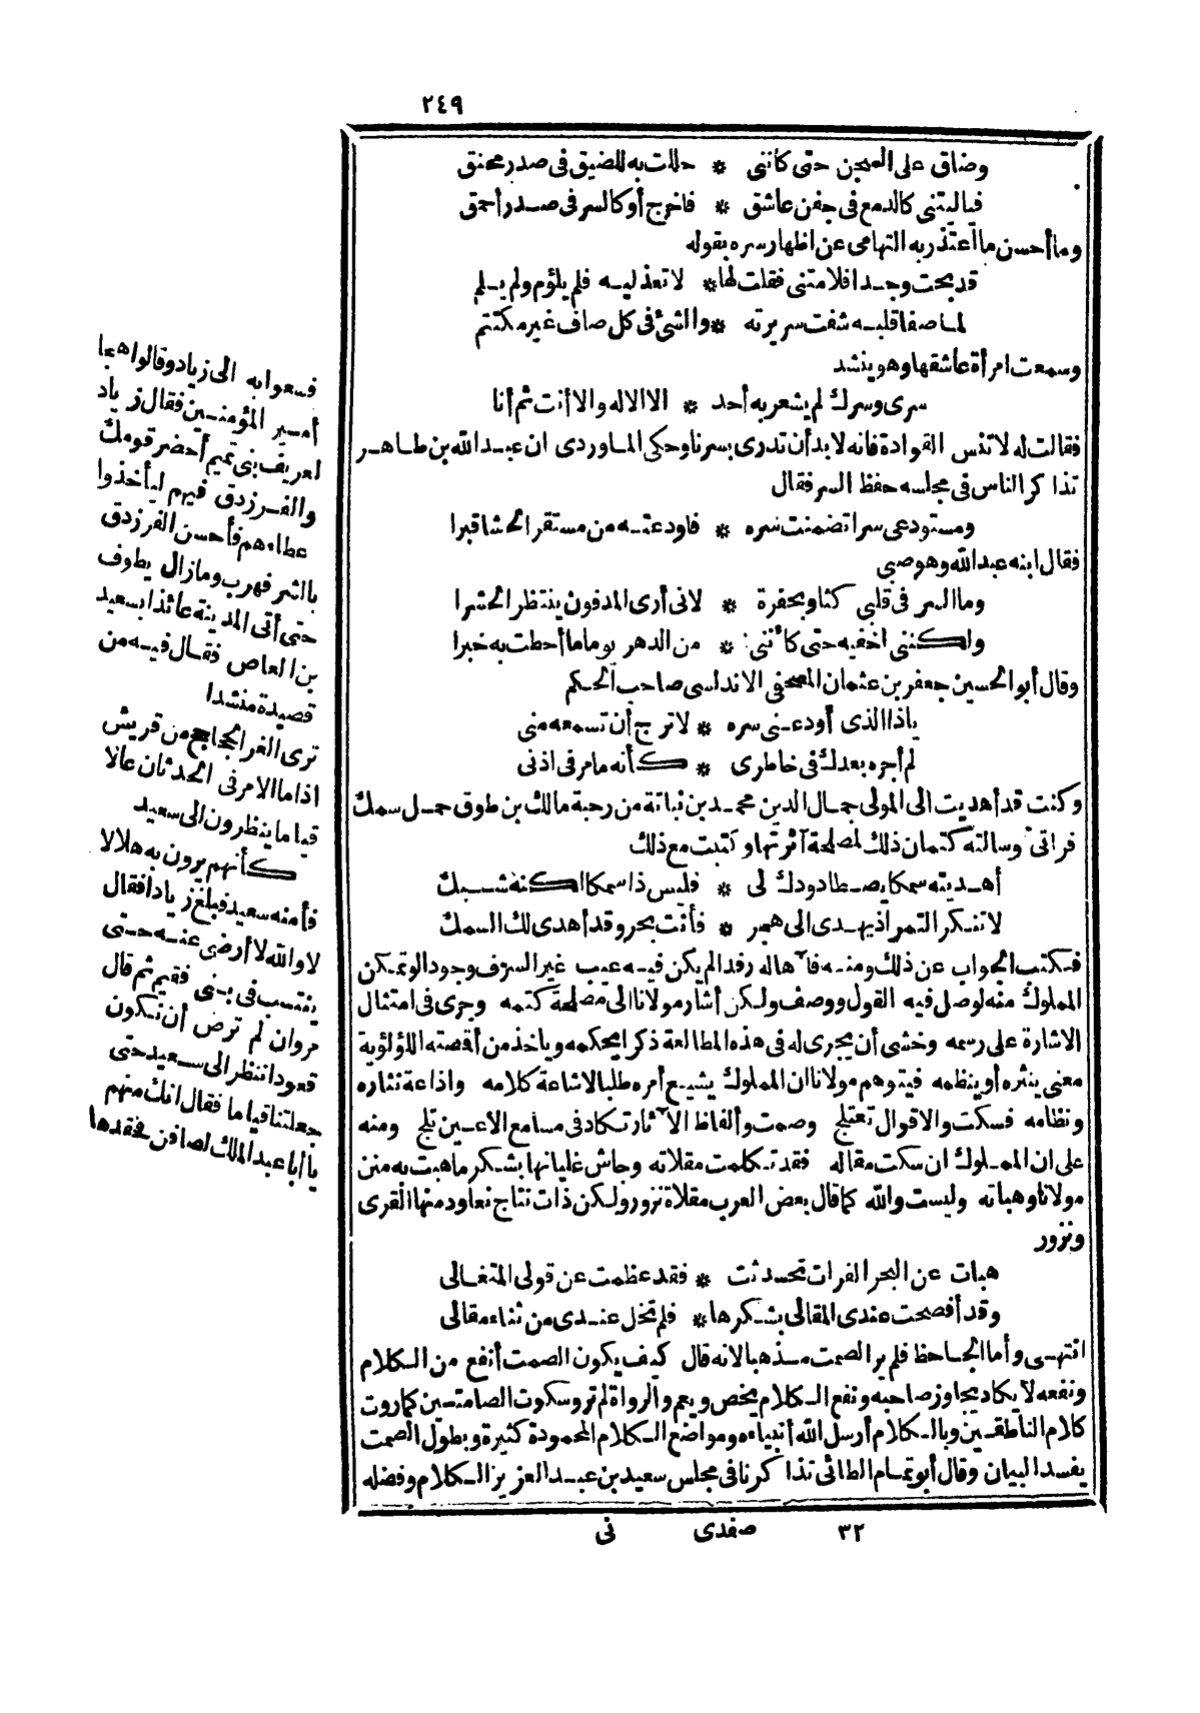 ٢٤٩
وضاق على السجن حتى كاننى * حللت به للضيق فى صدر محنق
فياليتنى كالدمع فى جفن عاشق * فاخرج أو كالسر فى صدر أحمق
وما أحسن ما اعتذر به التهامى عن اظهار سره بقوله
قد بحت وجدا فلامتنى فقلت لها * لا تعذليه فلم يلؤم ولم يلم
لما صفا قلبه شفت سريرته * والشئ فى كل صاف غير مكتتم
وسمعت امرأة عاشقها وهو ينشد
سرى وسرك لم يشعر به أحد * الا الاله والا أنت ثم أنا
فقالت له لا تنس القوادة فانه لابد أن تدرى بسرنا وحكى الماوردى ان عبد الله بن طاهر
تذاكر الناس فى مجلسه حفظ السر فقال
ومستودعى سرا تضمنت سره * فاودعته من مستقر الحشا قبرا
فقال ابنه عبد الله وهو صبى
وما السر فى قلبى كثاو بحفرة * لانى أرى المدفون ينتظر الحشرا
ولكننى اخفيه حتى كأننى * من الدهر يوما ما أحطت به خبرا
وقال أبو الحسين جعفر بن عثمان المصحفى الاندلسى صاحب الحكم
ياذا الذى أودعنى سره * لا ترج أن تسمعه منى
لم أجره بعدك فى خاطرى * كأنه ما مر فى اذنى
وكنت قد أهديت الى المولى جمال الدين محمد بن نباتة من رحبة مالك بن طوق حمل سمك
فراتى وسالته كتمان ذلك لمصلحة آثرتها وكتبت مع ذلك
أهديته سمكا يصطاد ودك لى * فليس ذا سمكا لكنه شبك
لا تنكر التمر اذ يهدى الى هجر * فأنت بحر وقد أهدى لك السمك
فكتب الجواب عن ذلك ومنه فآها له رفدا لم يكن فيه عيب غير السرف وجود الو تمكن
المملوك منه لوصل فيه القول ووصف ولكن أشار مولانا الى مصلحة كتمه وجرى فى امتثال
الاشارة على رسمه وخشى أن يجرى له فى هذه المطالعة ذكرا يحكمه وياخذ من أقصته اللؤلؤية
معنى ينثره أو ينظمه فيتوهم مولانا ان المملوك يشيع أمره طلبا لاشاعة كلامه واذاعة نثاره
ونظامه فسكت والاقوال تعتلج وصمت وألفاظ الآثار تكاد فى مسامع الأعين تلج ومنه
على ان المملوك ان سكت مقاله فقد تكلمت مقلاته وجاش غليانها بشكر ما هبت به منن
مولانا وهباته وليست والله كما قال بعض العرب مقلاة نزور ولكن ذات نتاج نعاود منها القرى
ونزور
هبات عن البحر الفرات تحسدثت * فقد عظمت عن قولى المتغالى
وقد أفصحت عندى المقالى بشكرها * فلم تخل عندى من ثناء مقالى
انتهى وأما الجاحظ فلم ير الصمت مذهبا لانه قال كيف يكون الصمت أنفع من الكلام
ونفعه لا يكاد يجاوز صاحبه ونفع الكلام يخص ويعم والرواة لم ترو سكوت الصامتين كما روت
كلام الناطقين وبالكلام أرسل الله أنبياءه ومواضع الكلام المحمودة كثيرة وبطول الصمت
يفسد البيان وقال أبو تمام الطائى تذاكرنا فى مجلس سعيد بن عبد العزيز الكلام وفضله
٣٢ صفدى فى
فسعوا به الى زياد وقالوا هجا
أمير المؤمنين فقال زياد
لعريف بنى تميم أحضر قومك
والفرزدق فيهم ليأخذوا
عطاءهم فأحسن الفرزدق
بالشر فهرب وما زال يطوف
حتى أتى المدينة عائذا بسعيد
بن العاص فقال فيه من
قصيدة منشدا
ترى الغر الجحاجح من قريش
اذا ما الامر فى الحدثان عالا
قياما ينظرون الى سعيد
كأنهم يرون به هلالا
فأمنه سعيد فبلغ زيادا فقال
لا والله لا أرضى عنه حتى
ينتسب فى بنى فقيم ثم قال
مروان لم ترض أن نكون
قعودا ننظر الى سعيد حتى
جعلتنا قياما فقال انك منهم
يا أبا عبد الملك لصافن فحقدها